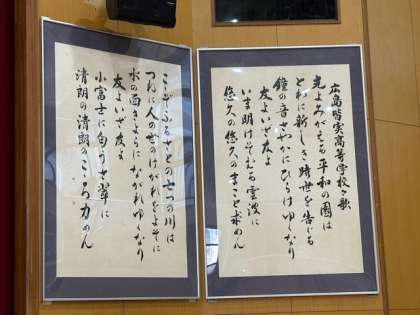 広島皆実高等学校々歌
光よみがえる平和の園は
とわに新しき時世を告ぐる
鐘の音さやかにひらけゆくなり
友よいざ友よ
いま明けそむる雲波に
悠久の悠久のまこと求めん
ここぞふるさとの七つの川は
つねに人の世のけがれをよそに
水の面きよらにながれゆくなり
友よいざ友よ
小富士に匂うさ翠に
清朗の清朗の